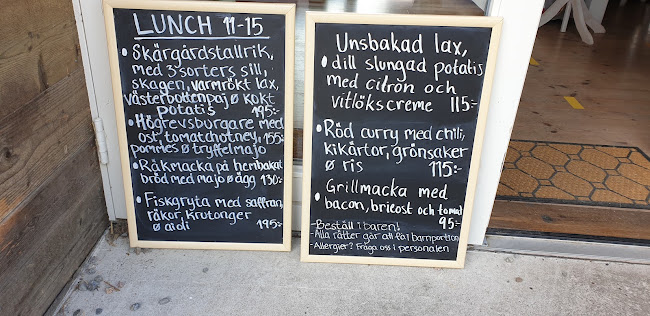 LUNCH 11-15
• Skärgårdstallrik,
med 3 sorters sill,
skagen, varmrökt lax,
västerbottenpaj ø kokt
potatis 195:-
• Högrevsburgare med
ost, tomatchotney, 155:-
pommes ø tryffelmajo
• Räkmacka på hembakat
bröd med majo ø ägg 130:-
• Fiskgryta med saffran,
räkor, krutonger
ø aioli 195:-
Unsbakad lax,
• dill slungad potatis
med citron och
vitlökscreme 115:-
• Röd curry med chili,
kikärtor, grönsaker
ø ris 115:-
• Grillmacka med
bacon, brieost och tomat
95:-
- Beställ i baren!
- Alla rätter går att få i barnportion
- Allergier? Fråga oss i personalen